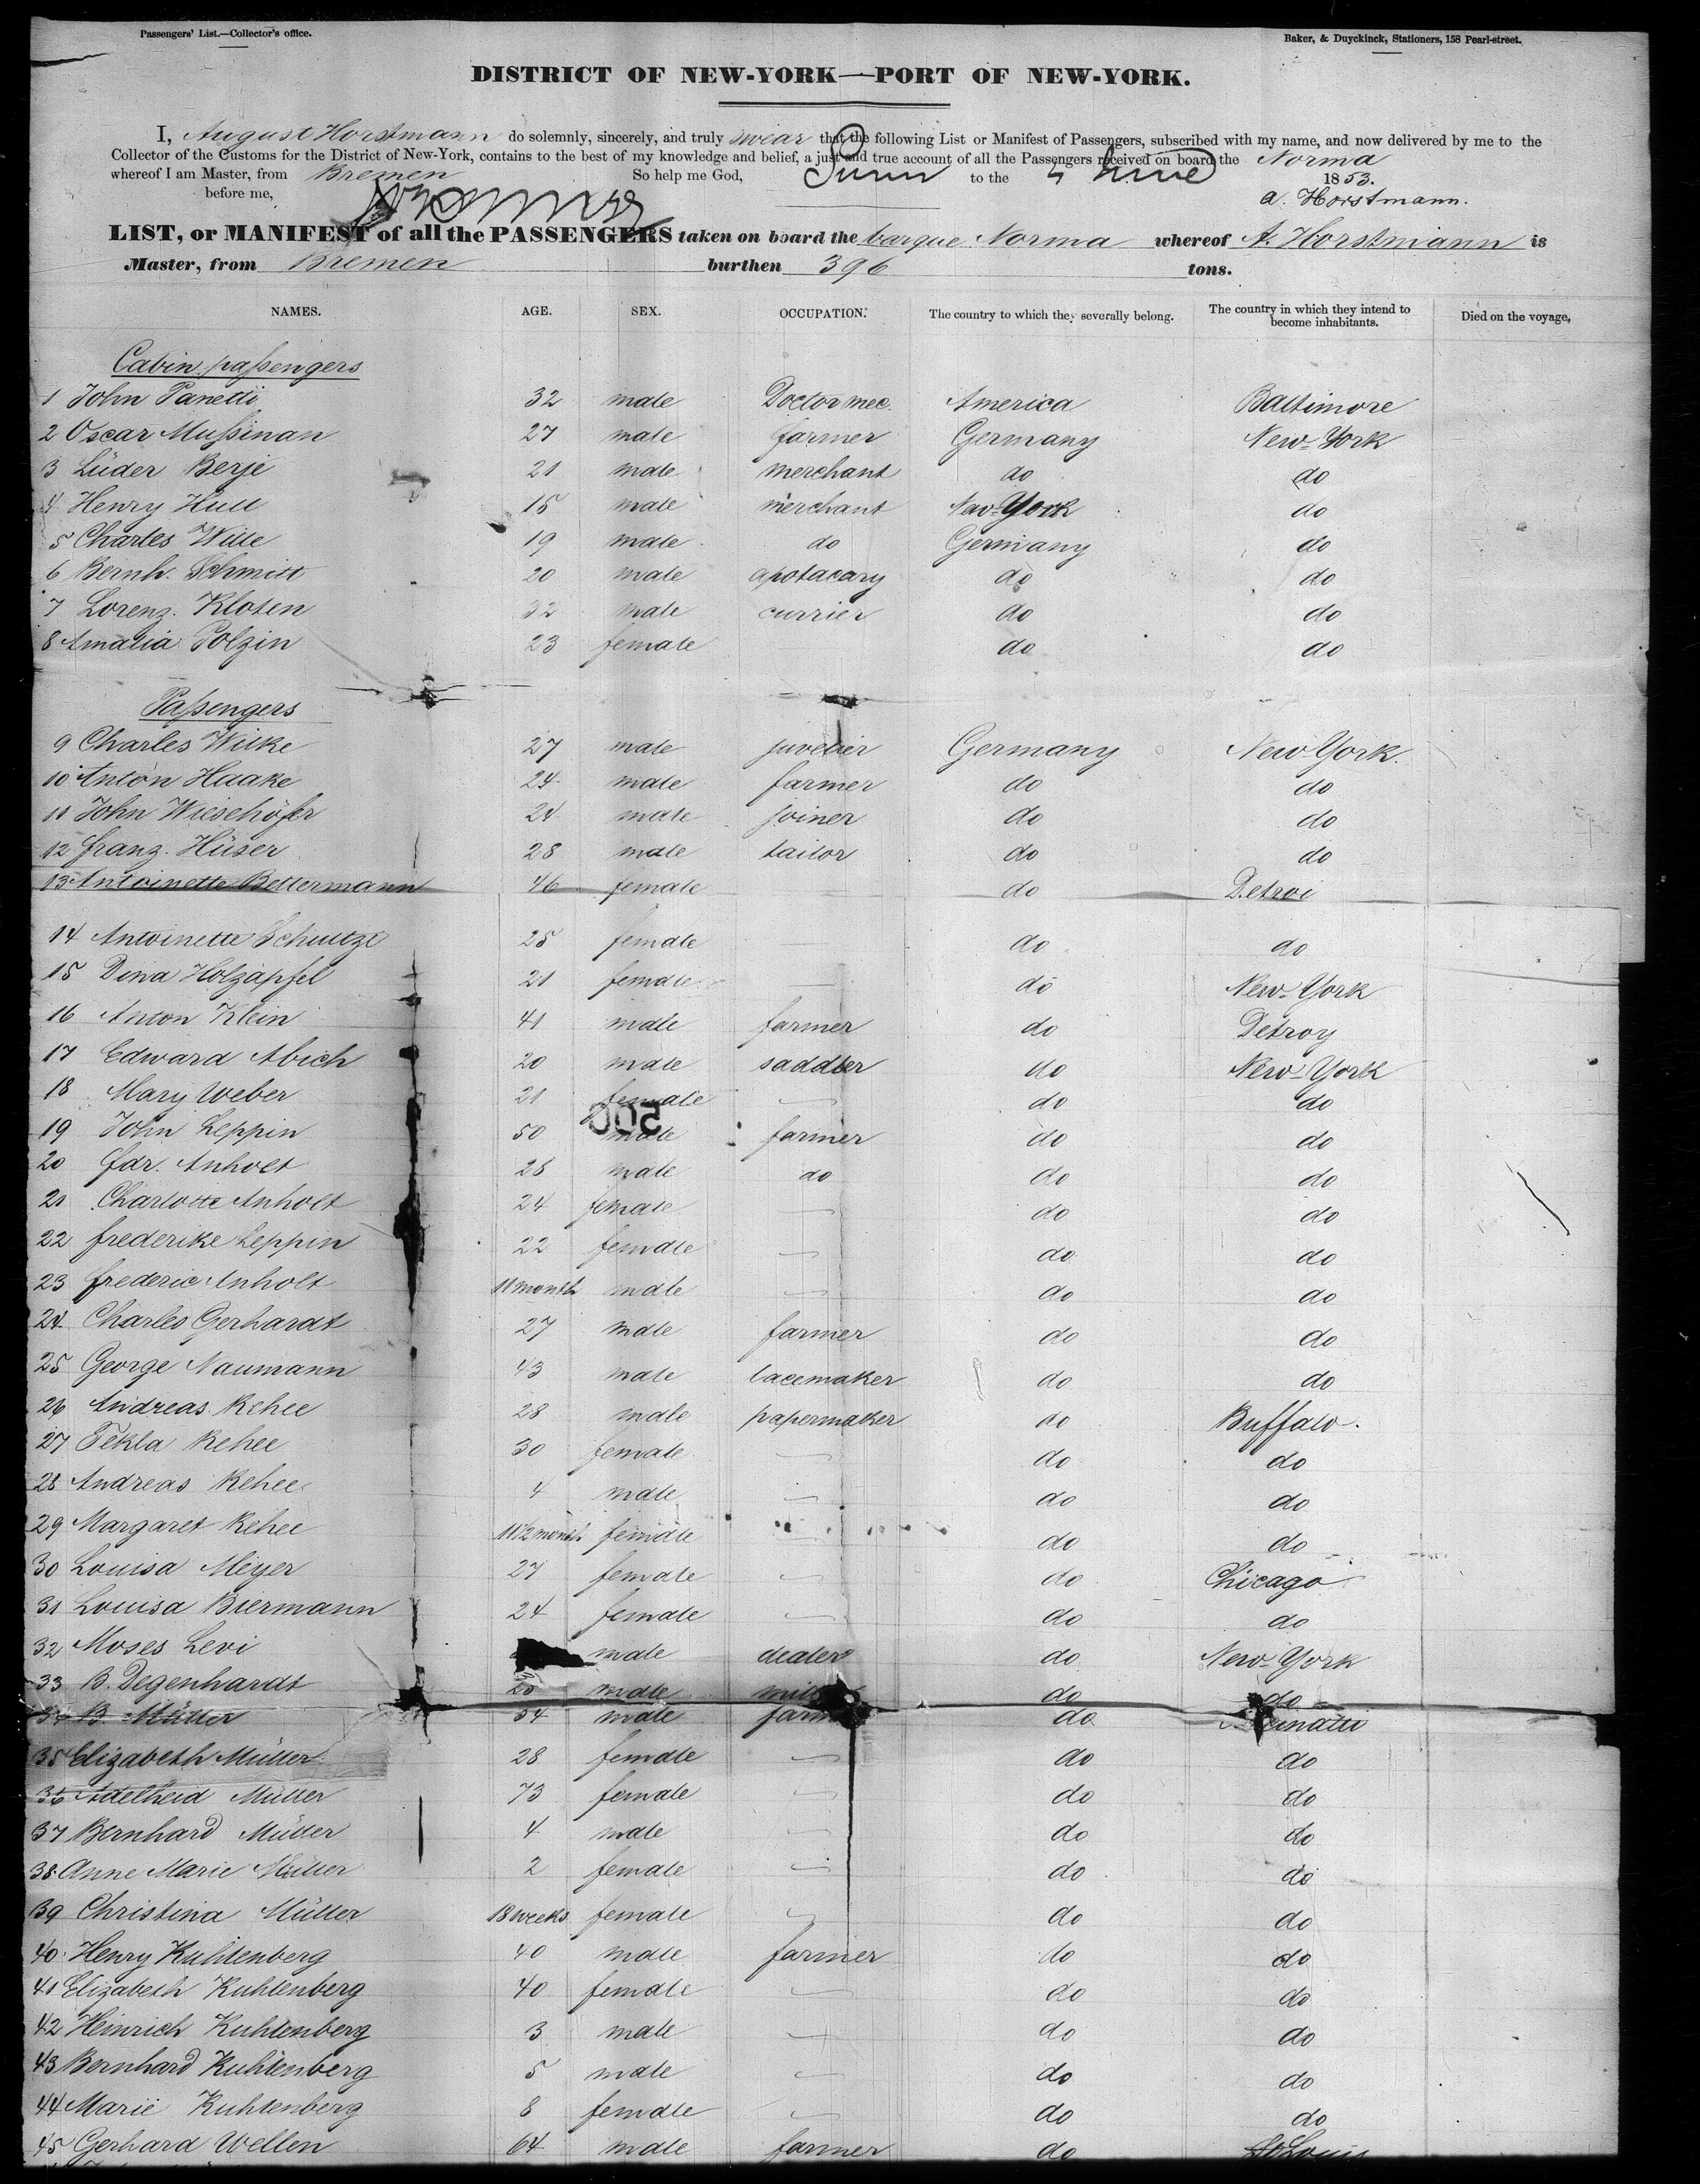 Passengers' List.—Collector's office.
Baker, & Duyckinck, Stationers, 158 Pearl-street.
DISTRICT OF NEW-YORK—PORT OF NEW-YORK.
I, August Horstmann do solemnly, sincerely, and truly swear that the following List or Manifest of Passengers, subscribed with my name, and now delivered by me to the
Collector of the Customs for the District of New-York, contains to the best of my knowledge and belief, a just and true account of all the Passengers received on board the Norma
whereof I am Master, from Bremen So help me God, to the June 1853.
before me, A. Horstmann.
LIST, or MANIFEST of all the PASSENGERS taken on board the barque Norma whereof A. Horstmann is
Master, from Bremen burthen 396 tons.
NAMES. AGE. SEX. OCCUPATION. The country to which they severally belong. The country in which they intend to become inhabitants. Died on the voyage,
Cabin passengers
1 John Panetti 32 male Doctor mec. America Baltimore
2 Oscar Mussinan 27 male farmer Germany New-York
3 Lüder Berje 21 male merchant do do
4 Henry Hull 15 male merchant New-York do
5 Charles Wille 19 male do Germany do
6 Bernh. Schmitt 20 male apotacary do do
7 Lorenz Kloten 32 male currier do do
8 Amalia Polzin 23 female do do
Passengers
9 Charles Wilke 27 male juvelier Germany New York.
10 Anton Haake 24 male farmer do do
11 John Wiesehöfer 24 male joiner do do
12 franz Hüser 28 male tailor do do
13 Antoinette Bettermann 46 female do Detroi
14 Antoinette Schultze 25 female do do
15 Dina Holzapfel 21 female do New-York
16 Anton Klein 41 male farmer do Detroy
17 Edward Abich 20 male saddler do New-York
18 Mary Weber 21 female do do
500
19 John Leppin 50 male farmer do do
20 fdr. Anholt 28 male do do do
21 Charlotte Anholt 24 female do do
22 frederike Leppin 22 female do do
23 frederic Anholt 11 month male do do
24 Charles Gerhardt 27 male farmer do do
25 George Naumann 43 male lacemaker do do
26 Andreas Rehee 28 male papermaker do Buffalo.
27 Tekla Rehee 30 female do do
28 Andreas Rehee 4 male do do
29 Margaret Rehee 11 1/2 month female do do
30 Louisa Meyer 27 female do Chicago
31 Louisa Biermann 24 female do do
32 Moses Levi male dealer do New-York
33 B. Degenhardt male do do
34 B. Müller 34 male do
35 Elizabeth Müller 28 female do do
36 Adelheid Müller 73 female do do
37 Bernhard Müller 4 male do do
38 Anne Marie Müller 2 female do do
39 Christina Müller 18 weeks female do do
40 Henry Kuhlenberg 40 male farmer do do
41 Elizabeth Kuhlenberg 40 female do do
42 Heinrich Kuhlenberg 3 male do do
43 Bernhard Kuhlenberg 5 male do do
44 Marie Kuhlenberg 8 female do do
45 Gerhard Wellen 64 male farmer do St Louis